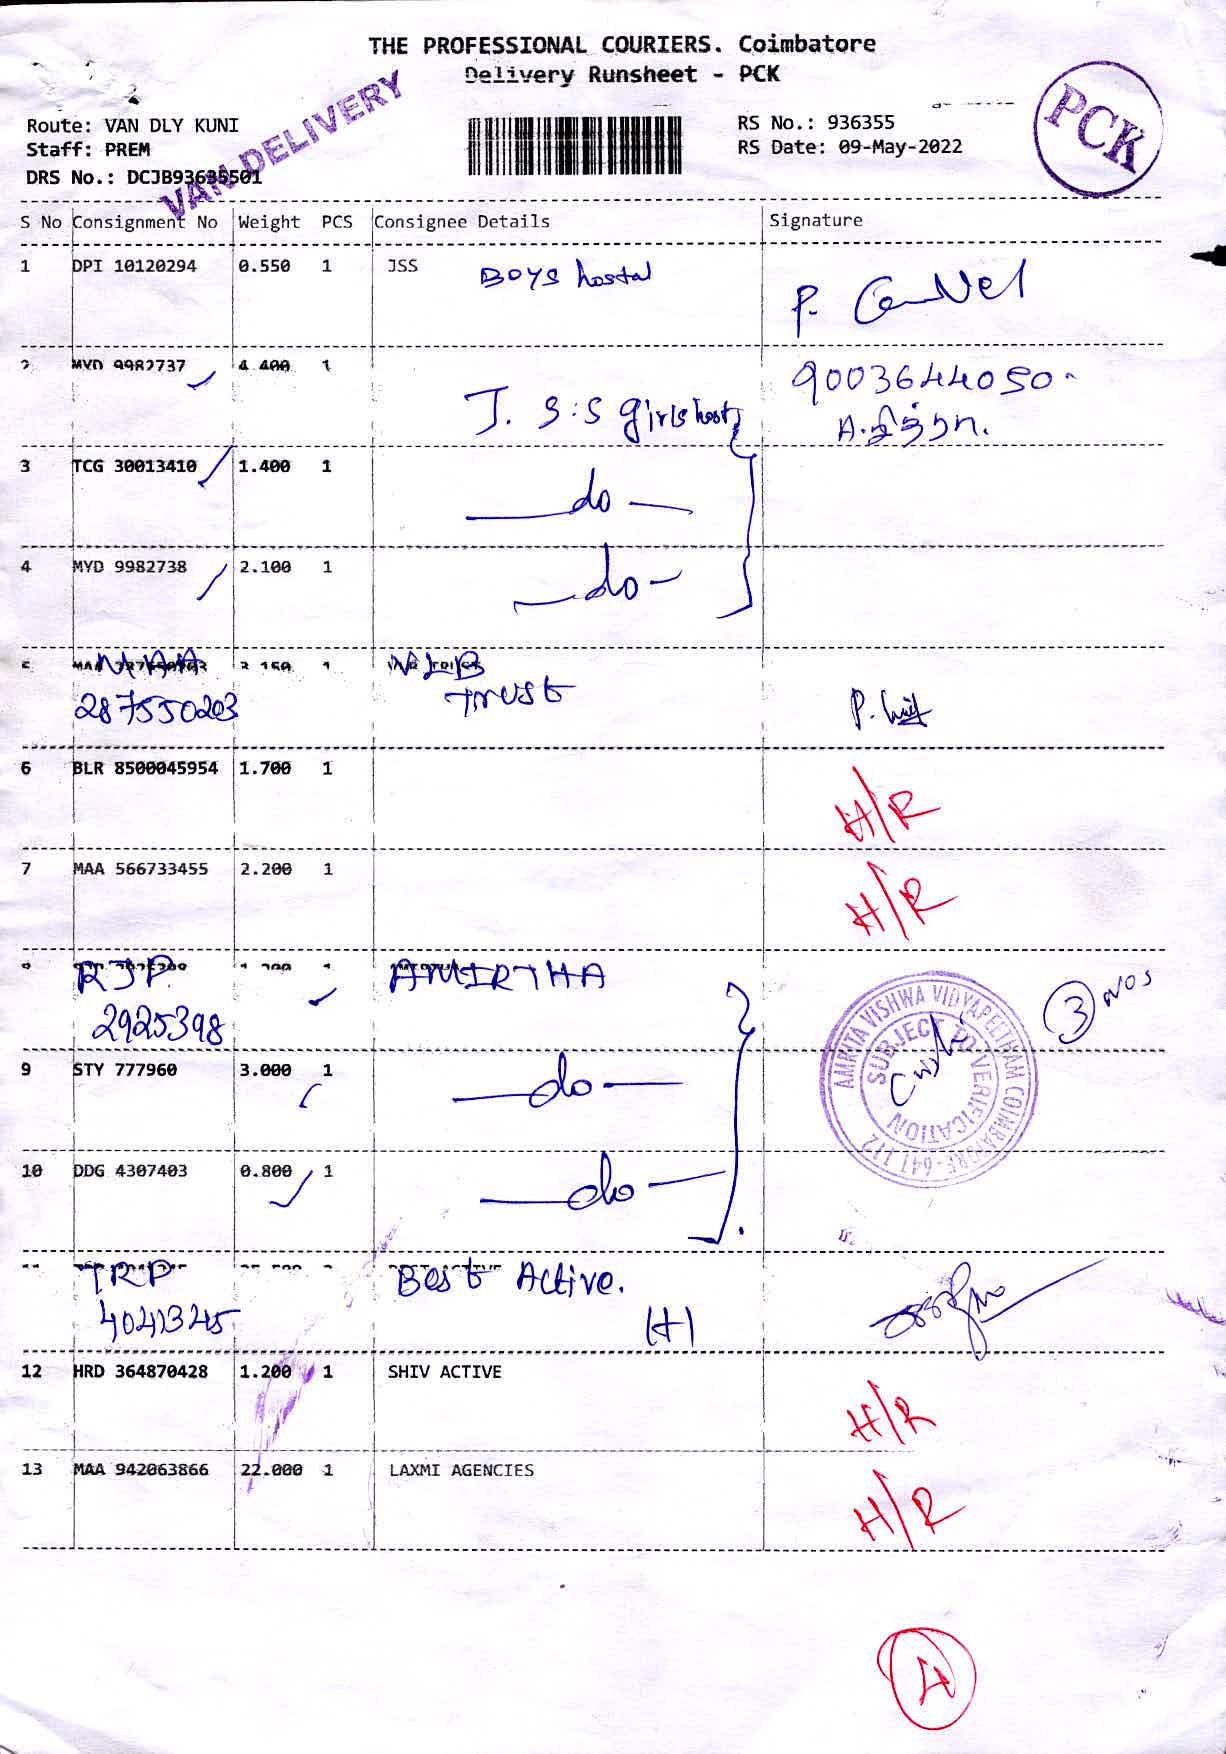 THE PROFESSIONAL COURIERS. Coimbatore
Delivery Runsheet - PCK
VAN DELIVERY
PCK
Route: VAN DLY KUNI
Staff: PREM
DRS No.: DCJB93635501
RS No.: 936355
RS Date: 09-May-2022
S No Consignment No Weight PCS Consignee Details Signature
1 DPI 10120294 0.550 1 JSS Boys hostal
P.
2 MYD 9982737 4.400 1
J. S.S girls host
9003644050
3 TCG 30013410 1.400 1
do
4 MYD 9982738 2.100 1
do
5 MAA 3.150 1 NLB
287550203 Trust
P.
6 BLR 8500045954 1.700 1
H/R
7 MAA 566733455 2.200 1
H/R
RJP 1 AMIRTHA
2925398
3 NOS
AMRITA VISHWA VIDYAPEETHAM COIMBATORE-641 112
SUBJECT TO VERIFICATION
9 STY 777960 3.000 1
do
10 DDG 4307403 0.800 1
do
TRP Best Active.
4041345 (H)
12 HRD 364870428 1.200 1 SHIV ACTIVE
H/R
13 MAA 942063866 22.000 1 LAXMI AGENCIES
H/R
A